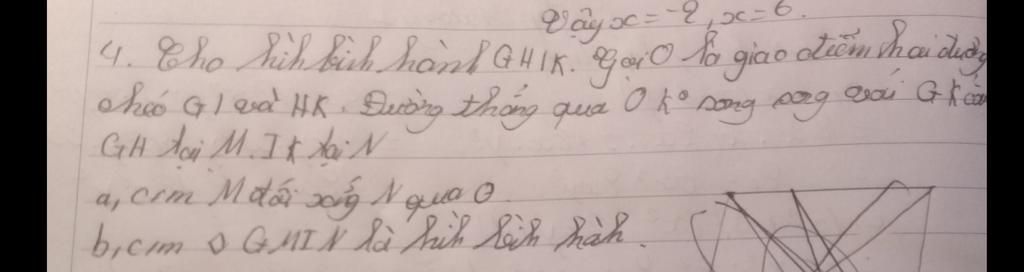 Vậy x = -2, x = 6.
4. Cho hìh bìh hành GHIK. Gọi O là giao điểm hai đườg
chéo GI và HK. Đường thẳng qua O k° song song với GK cắt
GH tại M. IK tại N
a, cm M đối xứg N qua O
b, cm ◊ GMIN là hìh bìh hàh.